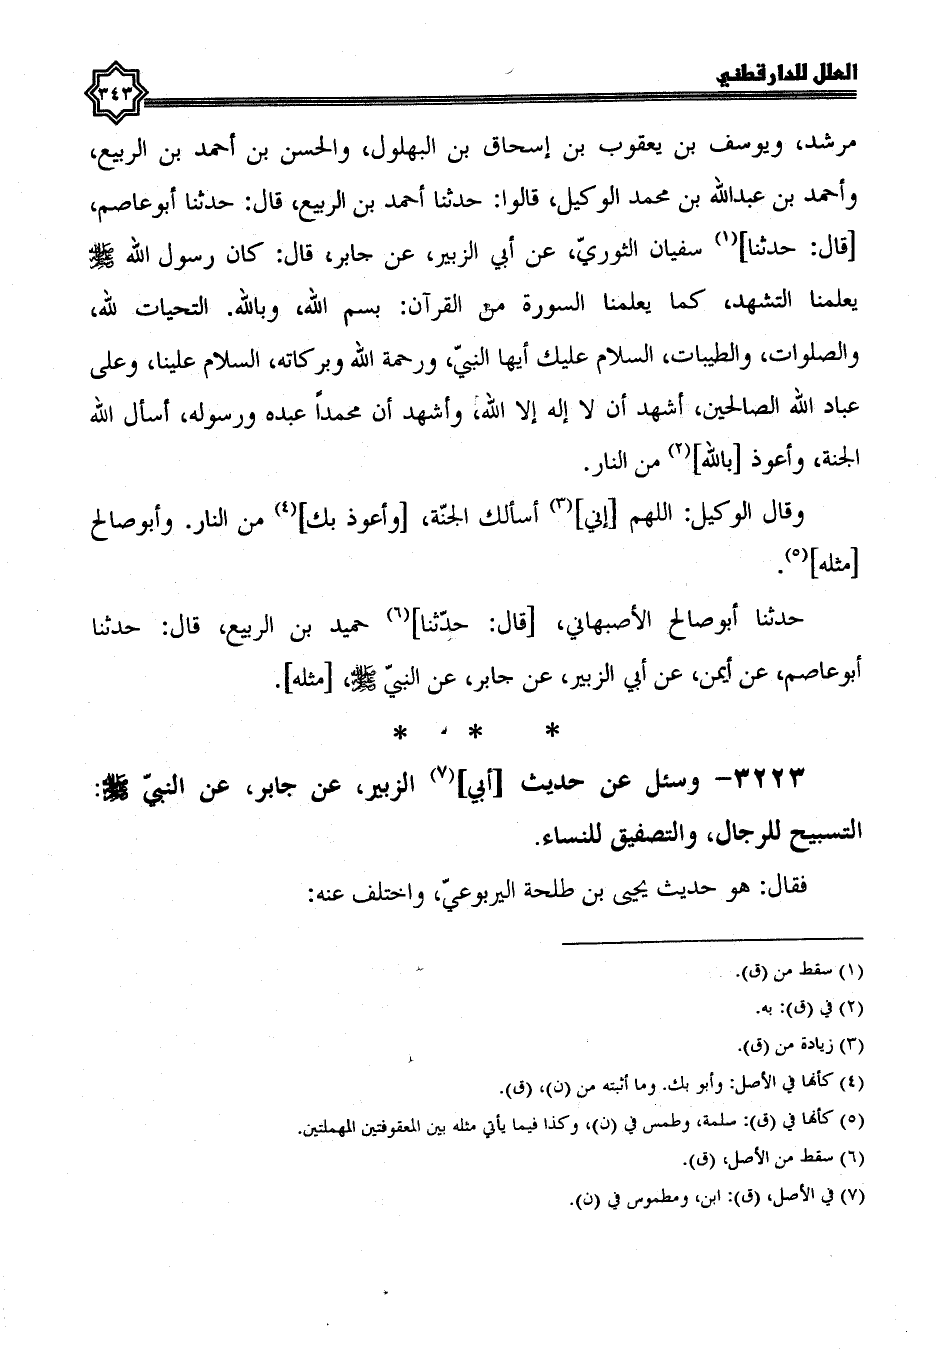 العلل للدارقطني
٣٤٣
مرشد، ويوسف بن يعقوب بن إسحاق بن البهلول، والحسن بن أحمد بن الربيع،
وأحمد بن عبدالله بن محمد الوكيل، قالوا: حدثنا أحمد بن الربيع، قال: حدثنا أبوعاصم،
[قال: حدثنا](١) سفيان الثوريّ، عن أبي الزبير، عن جابر، قال: كان رسول الله ﷺ
يعلمنا التشهد، كما يعلمنا السورة من القرآن: بسم الله، وبالله. التحيات لله،
والصلوات، والطيبات، السلام عليك أيها النبيّ، ورحمة الله وبركاته، السلام علينا، وعلى
عباد الله الصالحين، أشهد أن لا إله إلا الله، وأشهد أن محمداً عبده ورسوله، أسأل الله
الجنة، وأعوذ [بالله](٢) من النار.
وقال الوكيل: اللهم [إني](٣) أسألك الجنّة، [وأعوذ بك](٤) من النار. وأبوصالح
[مثله](٥).
حدثنا أبوصالح الأصبهاني، [قال: حدّثنا](٦) حميد بن الربيع، قال: حدثنا
أبوعاصم، عن أيمن، عن أبي الزبير، عن جابر، عن النبيّ ﷺ، [مثله].
* * *
٣٢٢٣- وسئل عن حديث [أبي](٧) الزبير، عن جابر، عن النبيّ ﷺ:
التسبيح للرجال، والتصفيق للنساء.
فقال: هو حديث يحيى بن طلحة اليربوعيّ، واختلف عنه:
(١) سقط من (ق).
(٢) في (ق): به.
(٣) زيادة من (ق).
(٤) كأنها في الأصل: وأبو بك. وما أثبته من (ن)، (ق).
(٥) كأنها في (ق): سلمة، وطمس في (ن)، وكذا فيما يأتي مثله بين المعقوفتين المهملتين.
(٦) سقط من الأصل، (ق).
(٧) في الأصل، (ق): ابن، ومطموس في (ن).